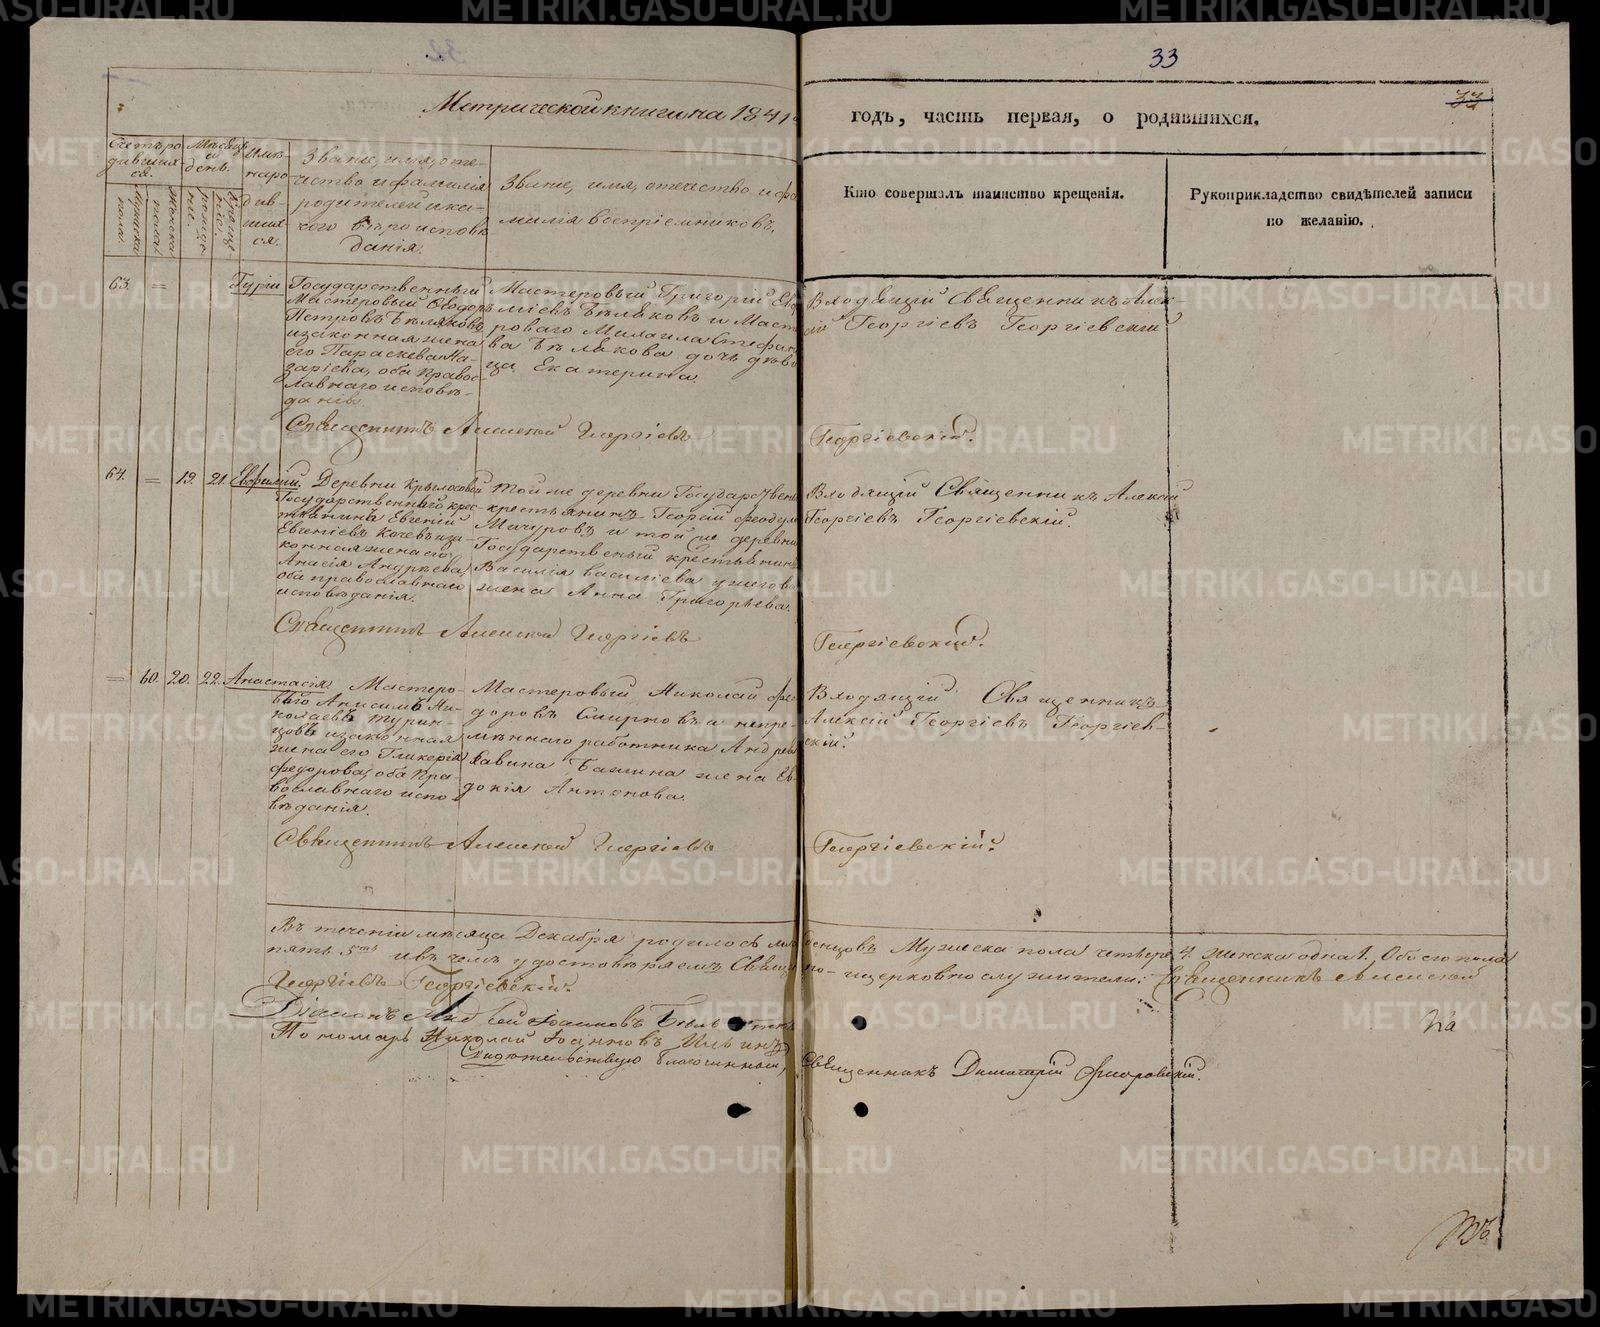 33
Метрической книги на 1841й
годъ, часть первая, о родившихся.
Счетъ ро-
дивших-
ся.
Мужеска
пола.
Женска
пола.
Мѣсяцъ
и
день.
Имѣ-
на ро
див-
шихъ
ся.
Званіе, имя, оте-
чество и фамилія
родителей и ка-
кого вѣроисповѣ-
данія.
Званіе, имя, отечество и фа-
милія воспріемниковъ.
Кто совершалъ таинство крещенія.
Рукоприкладство свидѣтелей записи
по желанію.
63. = Гурій
Государственный
Мастеровый Ѳеодоръ
Петровъ Бѣляковъ
и законная жена
его Параскева На-
зарiева, оба Право-
славнаго исповѣ-
данія.
Мастеровый Григорій
Бѣляковъ и Масте
роваго Михаила Стефано
ва Бѣлякова дочь дѣви
ца Екатерина.
Входящій Священникъ Алек-
сій Георгіевъ Георгіевскій
Священникъ Алексей Георгіевъ Георгіевскій.
64. = 19. 21.
Деревни Крыласовой
Государственный крес-
тьянинъ Евгеній
законная жена его
Андрѣева
оба православнаго
исповѣданія.
Той же деревни Государствен
крестьянинъ Георгій Ѳеодул
Мачуровъ и той же деревни
Государственный крестьянин
Василія Василіева
жена Анна Григорьева.
Входящій Священникъ Алексій
Георгіевъ Георгіевскій.
Священникъ Алексей Георгіевъ Георгіевскій.
= 60. 20. 22. Анастасія.
Мастеро-
вый Анисимъ Ни-
колаевъ Турин-
цовъ и законная
жена его Гликерія
Федорова, оба Пра-
вославнаго испо-
вѣданія.
Мастеровый Николай Фео
доровъ Смирновъ и непре-
мѣннаго работника Андрея
Савина Башина жена Ев
докія Антонова.
Входящій Священникъ
Алексій Георгіевъ Георгіев-
скій.
Священникъ Алексей Георгіевъ Георгіевскій.
Въ теченіи мѣсяца Декабря родилось мла денцовъ Мужеска пола четверо 4. Женска одна 1. Обоего пола
пять 5ть и въ чемъ удостовѣряемъ Священно- и церковнослужители: Священникъ Алексей
Георгіевъ Георгіевскій.
Діаконъ
Пономарь Николай Іоанновъ Ильинъ
Свидѣтельствую Благочинный, Священникъ Димитрій Флоровскій.
METRIKI.GASO-URAL.RU